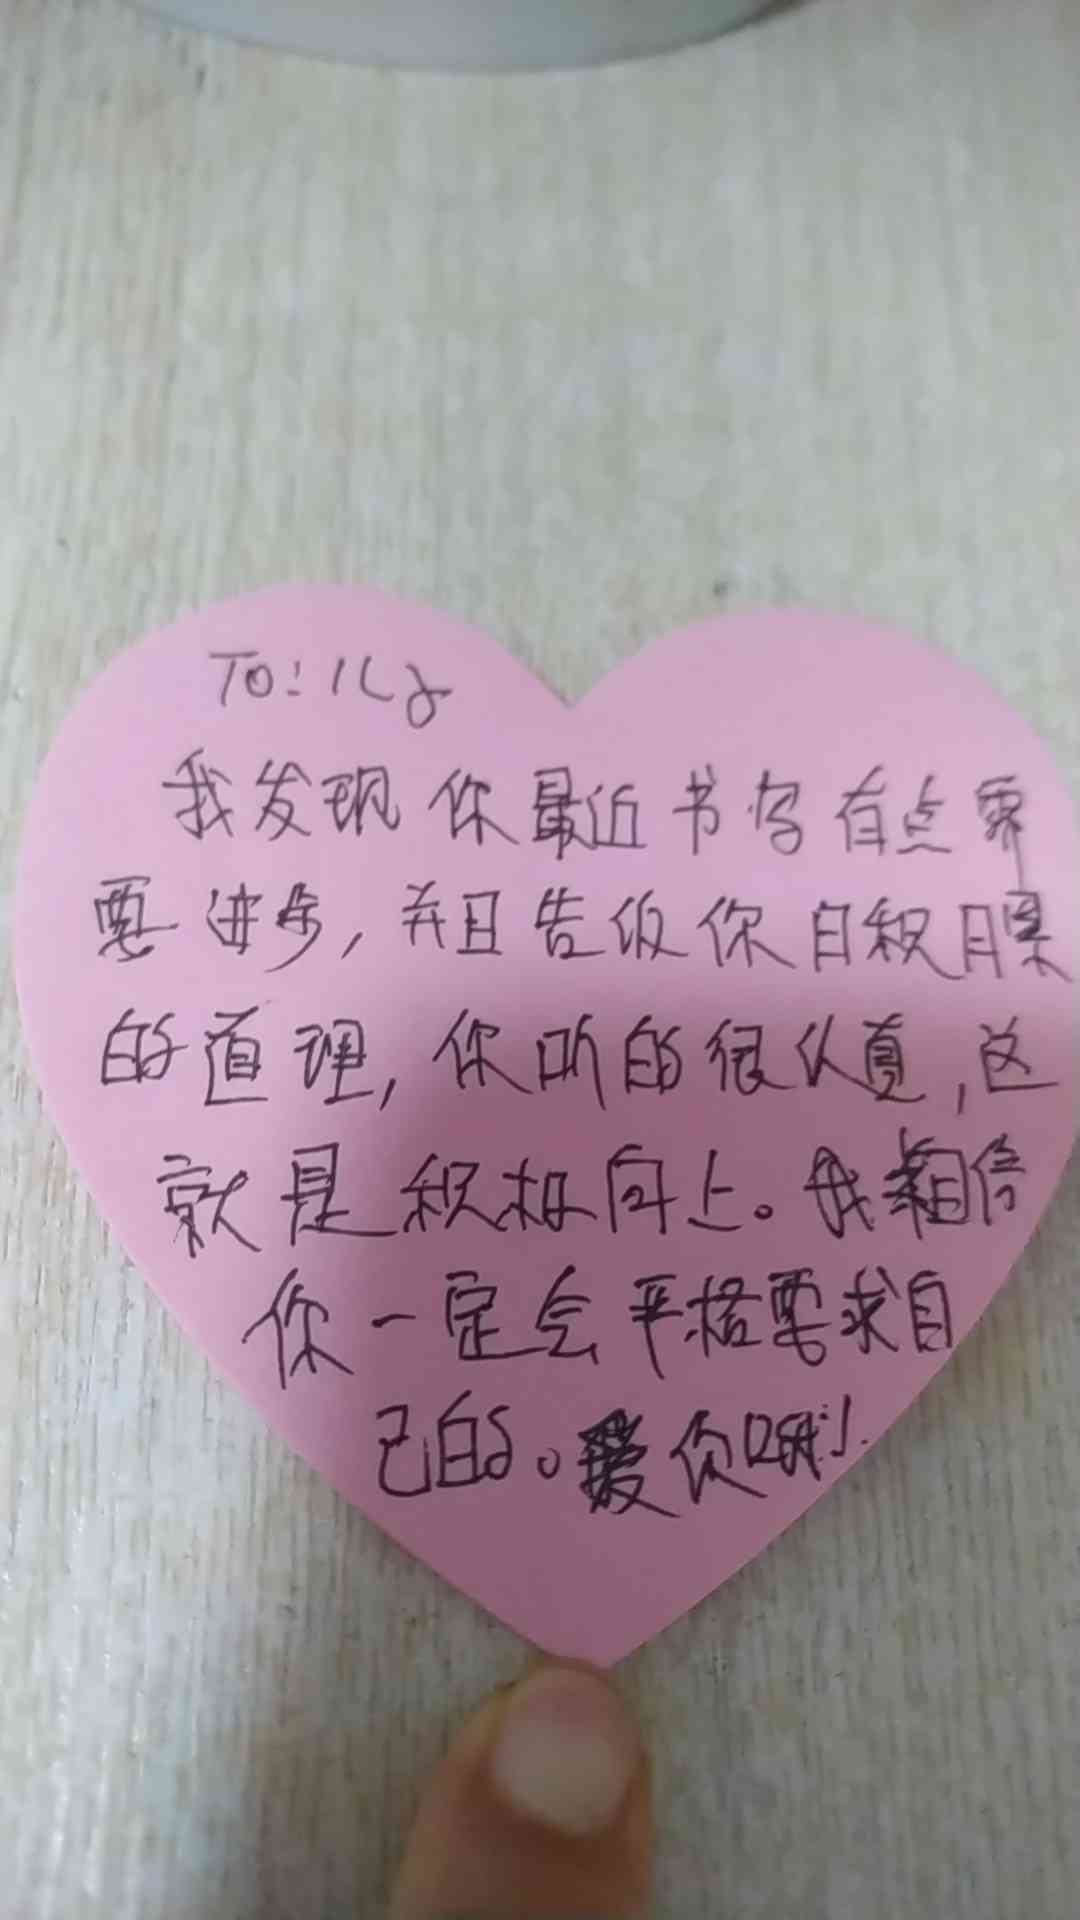 To:
我发现你最近书写有点需
要进步,并且告诉你日积月累
的道理,你听的很认真,这
就是积极向上。我相信
你一定会严格要求自
己的。爱你哦!